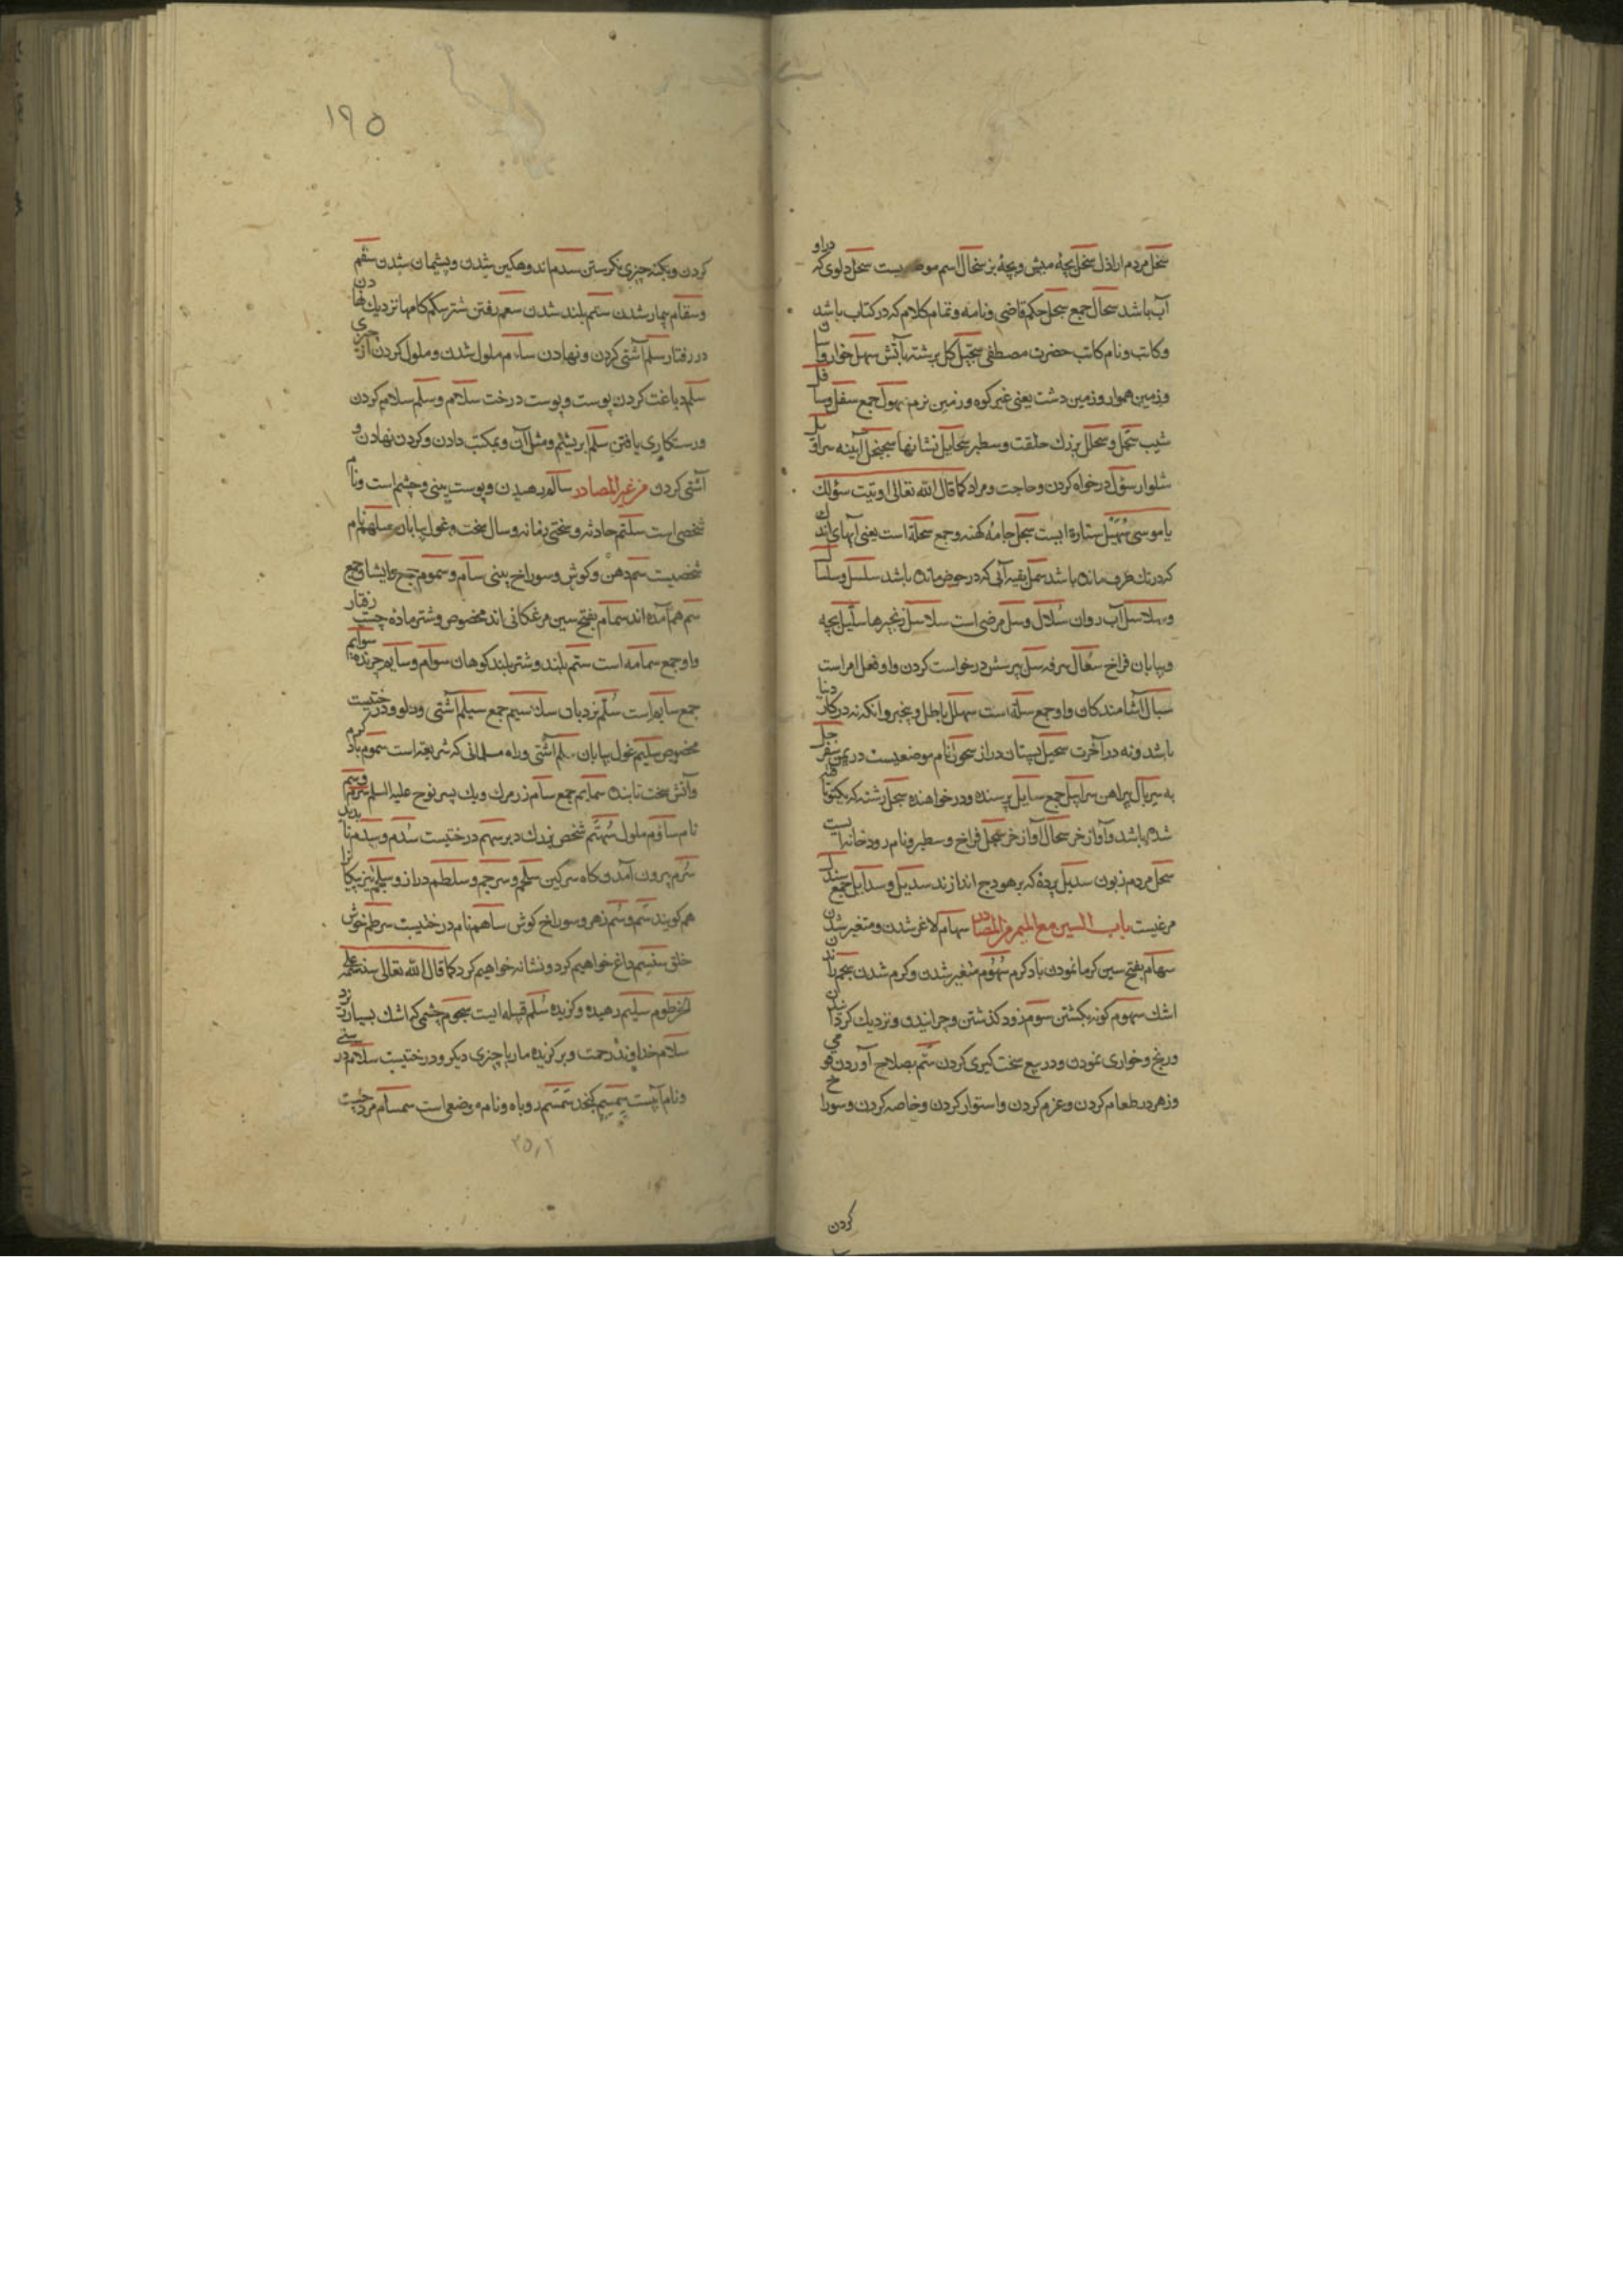 سخل مردم اراذل سخل بچهٔ میش و بچهٔ بز سخال اسم موضعیست سجل دلوی که دراو
آب باشد سجال جمع سجل حکم قاضی و نامه و تمام کلام که در کتاب باشد
و کاتب و نام کاتب حضرت مصطفی سجیل کل برشته بآتش سهل خوار و
و زمین هموار و زمین دشت یعنی غیر کوه و زمین نرم سهول جمع سفل و سافل
شیب سبحل و سحبل بزرك خلقت و سطبر نشانها سجنجل آینه سراویل
شلوار سؤل درخواه کردن و حاجت و مراد کما قال الله تعالی اوتیت سؤلك
یا موسی سهیل ستاره ایست سمل جامهٔ کهنه و جمع سملة است یعنی آبهای اندك
که در تك ظرف مانده باشد سمل بقیه آبی که در حوض مانده باشد سلسل و سلسال
و سلاسل آب روان سلال و سل مرضی است سلاسل زنجیرها سلیل بچه
و بیابان فراخ سعال سرفه سل بپرس درخواست کردن و او فعل امر است
سبال آشامندکان و او جمع سبلة است سهلل باطل و بیخبر و انکه نه در کار دنیا
باشد و نه در آخرت سحیل پستان دراز سحول نام موضعیست در یمن سفرجل
به سربال پیراهن سرابیل جمع سایل پرسنده و درخواهنده سحل رشته که یکتو تافته
شده باشد و آواز خر سحال آواز خر سجل فراخ و سطبر و نام رودخانه ایست
سخل مردم زبون سدیل پردهٔ که بر هودج اندازند سدیل و سدایل جمع سندل
مرغیست باب السین مع المیم من المصادر سهام لاغر شدن و متغیر شدن
سهام بفتح سین کرما نمودن باد کرم سهوم متغیر شدن و کرم شدن سجم راندن
اشك سهوم کونه بکشتن سوم زود کذشتن و چرانیدن و نزدیك کردانیدن
و رنج و خواری نمودن و در بیع سخت کیری کردن سم بصلاح آوردن
و زهر در طعام کردن و عزم کردن و استوار کردن و خاصه کردن و سوراخ
کردن
۱۹۵
کردن و بکنه چیزی نکرستن سدم اندوهکین شدن و پشیمان شدن سقم
و سقام بیمار شدن سنم بلند شدن سعم رفتن شتر سکم کامها نزدیك نهادن
در رفتار سلم آشتی کردن و نهادن سأم ملول شدن و ملول کردن از چیزی
سلم دباغت کردن پوست و پوست درخت سلام و سلم سلام کردن
و رستکاری یافتن سلم ابریشم و مثل آن و بمکتب دادن و کردن نهادن و
آشتی کردن من غیر المصادر سالم رهیدن و پوست بینی و چشم است و نام
شخصی است سلتم حادثه و سختی زمانه و سال سخت و غول بیابان سلهم نام
شخصیست سم دهن و کوش و سوراخ بینی سام و سموم جمع و ایشان جمع
سم هم آمده اند سمام بفتح سین مرغکانی اند مخصوص و شتر مادهٔ چست رفتار
و او جمع سمامه است سنم بلند و شتر بلند کوهان سوام و سایم چرنده سوایم
جمع سایم است سلم نردبان سلالیم جمع سلم آشتی و دلو و درختیست
مخصوص سلیم غول بیابان سلم آشتی و راه مسلمانی که شریعت است سموم باد کرم
و آتش سخت تابنده سمایم جمع سام زر مرك و یك پسر نوح علیه السلم
نام سؤم ملول شخص بزرك دبر سهم درختیست سدم و سدم
سرم بیرون آمدنکاه سرکین سلجم و سرجم و سلطم دراز و سلجم تیز پیکان را
هم کویند سم و سم زهر و سوراخ کوش ساهم نام درختیست سرطم خوش
خلق سنسم داغ خواهیم کرد و نشانه خواهیم کرد کما قال الله تعالی سنسمه علی
الخرطوم سلیم رهیده و کزیده سلم قبیله ایست سجوم چشمی که اشك بسیار ریزد
سلام خداوند رحمت و برکزیده مار یا چیزی دیکر و درختیست سلام
و نام آبیست سمسم کنجد سمسم روباه و نام موضعی است سمسام مرد چست